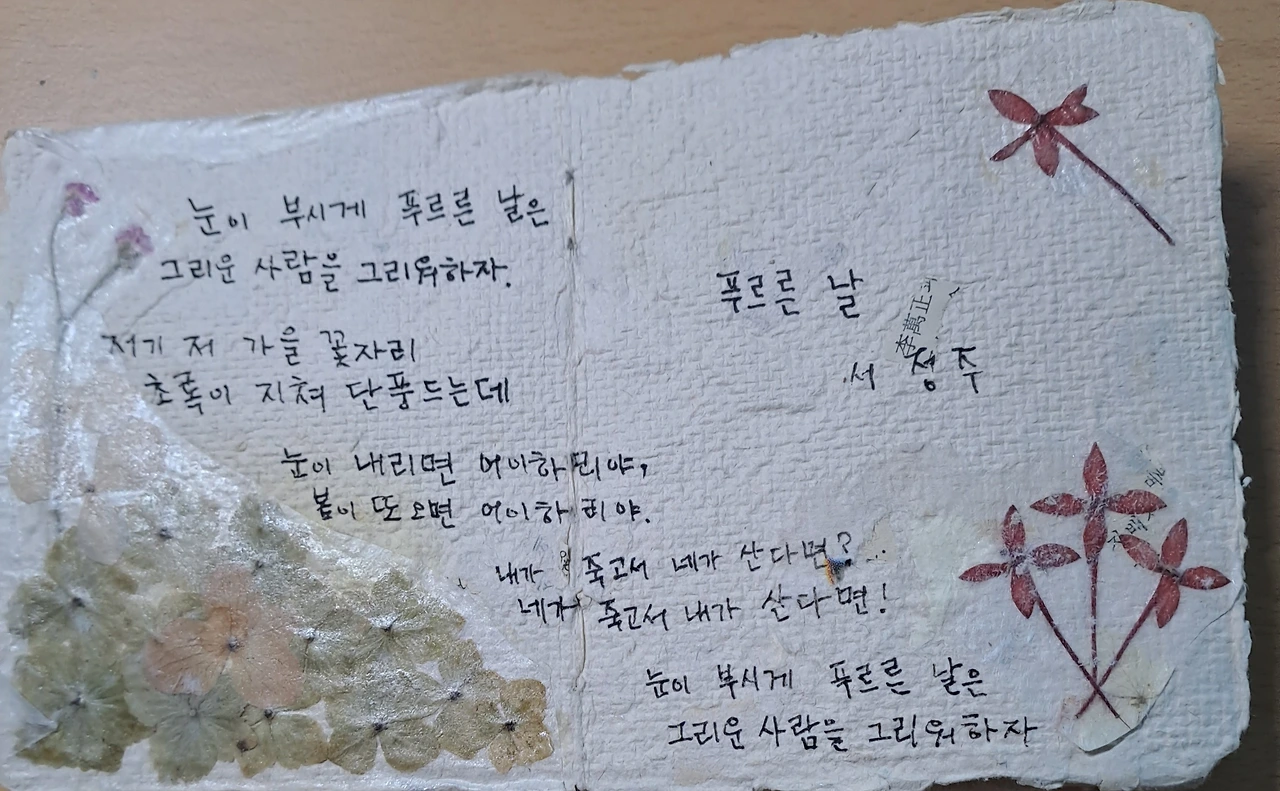 푸르른 날
서정주
눈이 부시게 푸르른 날은
그리운 사람을 그리워하자.
저기 저 가을 꽃자리
초록이 지쳐 단풍드는데
눈이 내리면 어이하리야,
봄이 또 오면 어이하리야.
내가 죽고서 네가 산다면?
네가 죽고서 내가 산다면!
눈이 부시게 푸르른 날은
그리운 사람을 그리워하자
李萬正